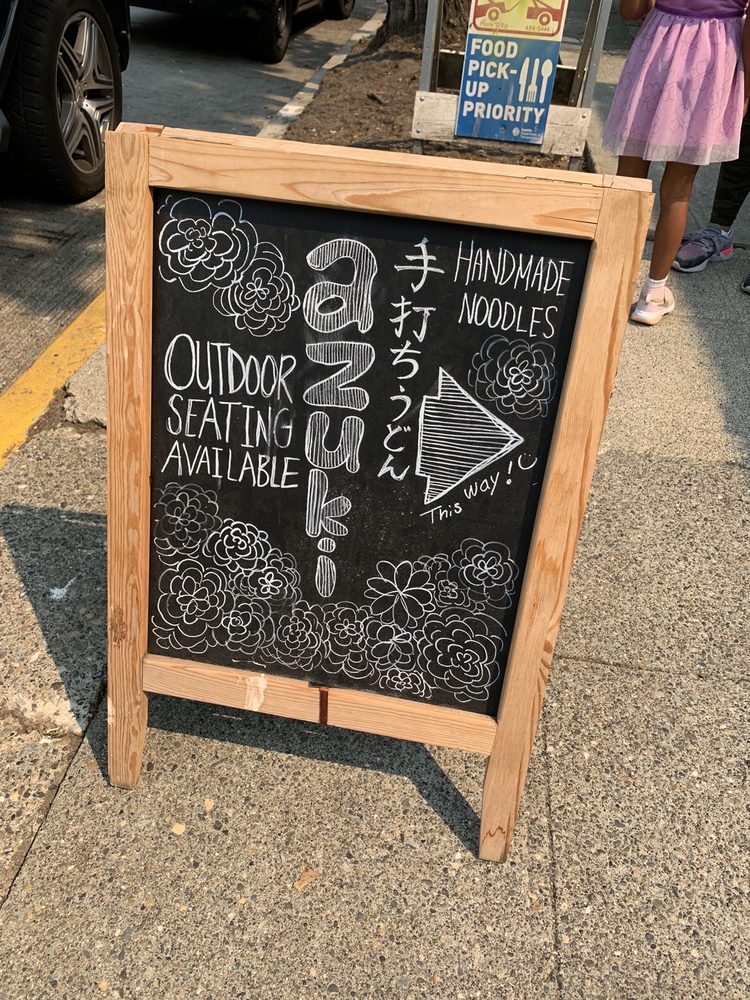 FOOD
PICK-
UP
PRIORITY
OUTDOOR
SEATING
AVAILABLE
azuki
手打ちうどん
HANDMADE
NOODLES
This way!